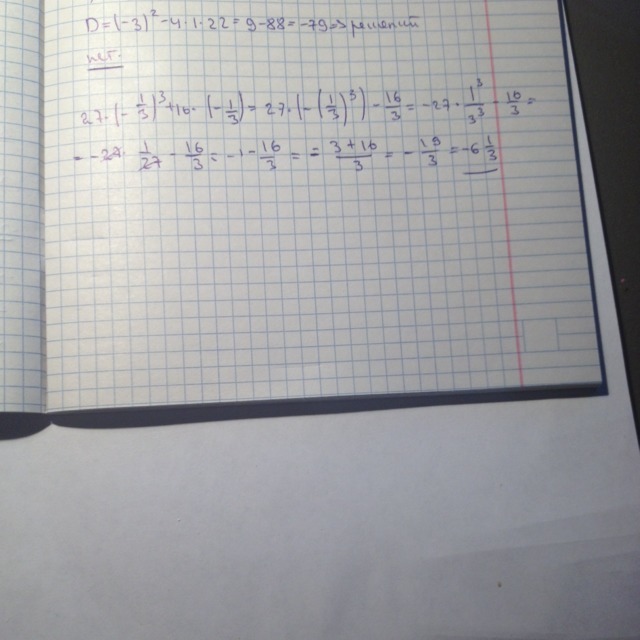 D=(-3)²-4·1·22=9-88=-79⇒ решений
нет
27·(-1/3)³+16·(-1/3)=27·(-(1/3)³)-16/3=-27·1³/3³-16/3=
=-27·1/27-16/3=-1-16/3==-3+16/3=-19/3=-6 1/3